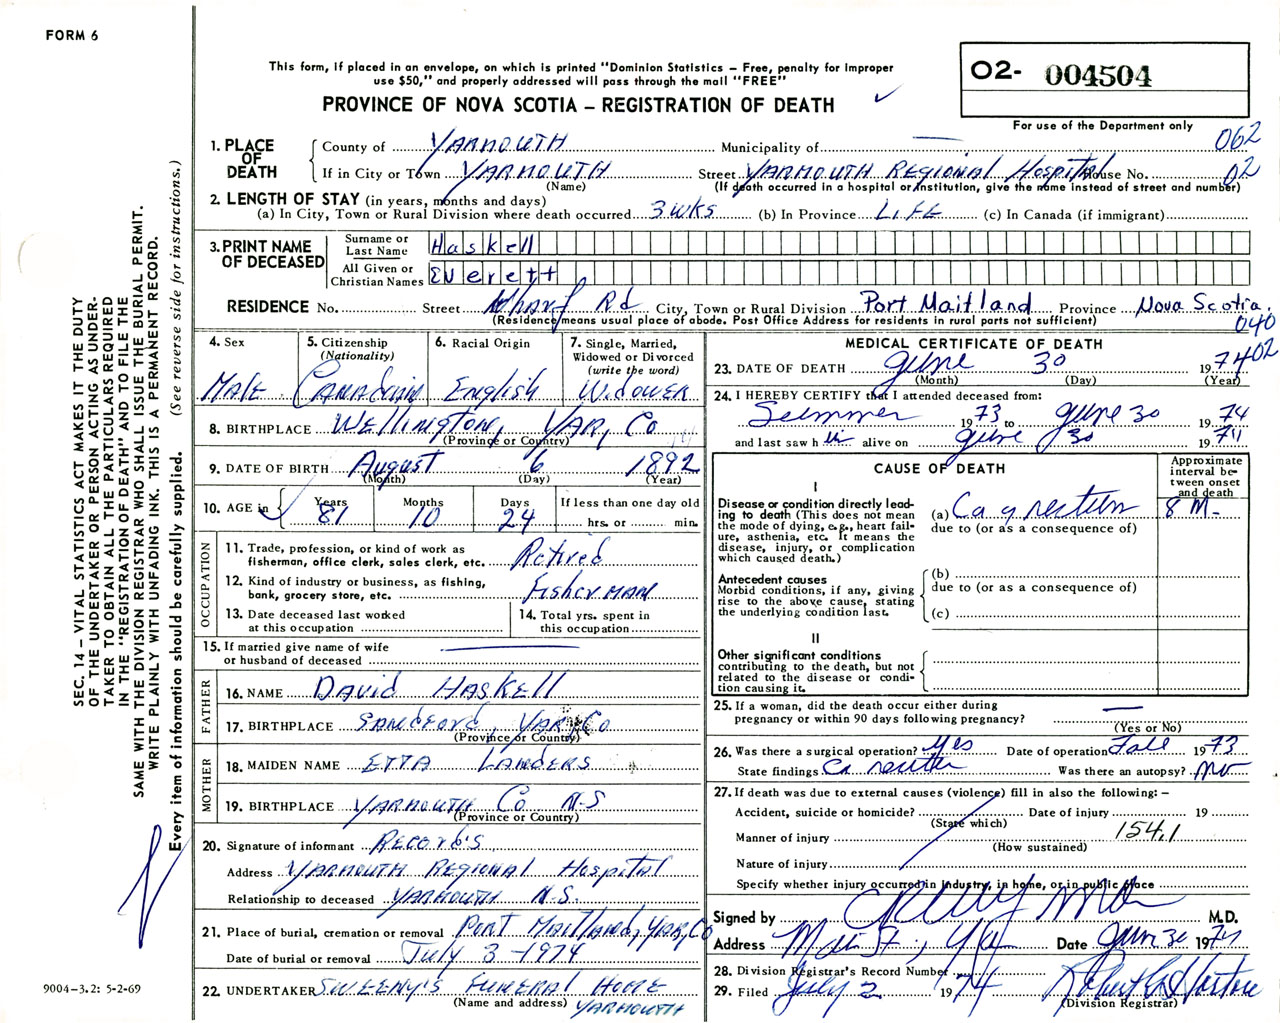 FORM 6
This form, if placed in an envelope, on which is printed "Dominion Statistics – Free, penalty for improper
use $50," and properly addressed will pass through the mail "FREE"
PROVINCE OF NOVA SCOTIA – REGISTRATION OF DEATH
O2- 004504
For use of the Department only
062
1. PLACE OF DEATH
County of Yarmouth Municipality of —
If in City or Town Yarmouth (Name) Street Yarmouth Regional Hospital House No. 02
(If death occurred in a hospital or institution, give the name instead of street and number)
2. LENGTH OF STAY (in years, months and days)
(a) In City, Town or Rural Division where death occurred 3 wks (b) In Province LIFE (c) In Canada (if immigrant)
3. PRINT NAME OF DECEASED
Surname or Last Name Haskell
All Given or Christian Names Everett
RESIDENCE No. Street Wharf Rd City, Town or Rural Division Port Maitland Province Nova Scotia.
(Residence means usual place of abode. Post Office Address for residents in rural parts not sufficient)
040
02
4. Sex
Male
5. Citizenship (Nationality)
Canadian
6. Racial Origin
English
7. Single, Married, Widowed or Divorced (write the word)
Widower
8. BIRTHPLACE Wellington, Yar, Co
(Province or Country)
9. DATE OF BIRTH August 6 1892
(Month) (Day) (Year)
10. AGE in Years Months Days If less than one day old
81 10 24 hrs. or min.
OCCUPATION
11. Trade, profession, or kind of work as
fisherman, office clerk, sales clerk, etc. Retired
12. Kind of industry or business, as fishing,
bank, grocery store, etc. Fisherman
13. Date deceased last worked
at this occupation
14. Total yrs. spent in
this occupation
15. If married give name of wife
or husband of deceased
FATHER
16. NAME David Haskell
17. BIRTHPLACE Sandford, Yar Co
(Province or Country)
MOTHER
18. MAIDEN NAME Etta Landers
19. BIRTHPLACE Yarmouth Co N-S
(Province or Country)
20. Signature of informant Record's
Address Yarmouth Regional Hospital
Relationship to deceased Yarmouth N.S.
21. Place of burial, cremation or removal Port Maitland, Yar, Co
Date of burial or removal July 3 - 1974
22. UNDERTAKER Sweeny's Funeral Home
(Name and address) Yarmouth
MEDICAL CERTIFICATE OF DEATH
23. DATE OF DEATH June 30 1974
(Month) (Day) (Year)
24. I HEREBY CERTIFY that I attended deceased from:
Summer 1973 to June 30 1974
and last saw h im alive on June 30 1974
CAUSE OF DEATH
Approximate interval between onset and death
I
Disease or condition directly leading to death (This does not
the mode of dying, e.g., heart failure, asthenia, etc. It means the
disease, injury, or complication
which caused death.)
(a) Ca of rectum 8 M-
due to (or as a consequence of)
Antecedent causes
Morbid conditions, if any, giving
rise to the above cause, stating
the underlying condition last.
(b)
due to (or as a consequence of)
(c)
II
Other significant conditions
contributing to the death, but not
related to the disease or condition causing it.
25. If a woman, did the death occur either during
pregnancy or within 90 days following pregnancy? —
(Yes or No)
26. Was there a surgical operation? Yes Date of operation Fall 1973
State findings Ca rectum Was there an autopsy? no
27. If death was due to external causes (violence) fill in also the following: –
Accident, suicide or homicide? Date of injury 19
(State which)
Manner of injury 154.1
(How sustained)
Nature of injury
Specify whether injury occurred in industry, in home, or in public place
Signed by M.D.
Address Main St., Yar Date June 30 1974
28. Division Registrar's Record Number
29. Filed July 2 1974
(Division Registrar)
SEC. 14 – VITAL STATISTICS ACT MAKES IT THE DUTY
OF THE UNDERTAKER OR PERSON ACTING AS UNDER-
TAKER TO OBTAIN ALL THE PARTICULARS REQUIRED
IN THE "REGISTRATION OF DEATH" AND TO FILE THE
SAME WITH THE DIVISION REGISTRAR WHO SHALL ISSUE THE BURIAL PERMIT.
WRITE PLAINLY WITH UNFADING INK. THIS IS A PERMANENT RECORD.
Every item of information should be carefully supplied. (See reverse side for instructions.)
9004-3.2: 5-2-69